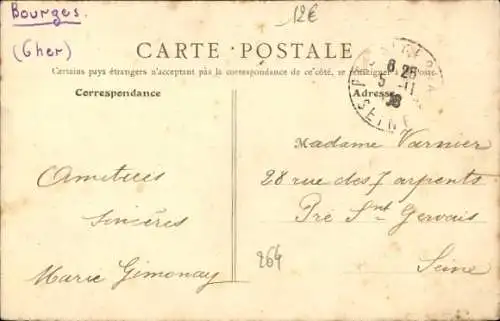 Bourges.
(Cher)
12€
CARTE POSTALE
Certains pays étrangers n'acceptant pas la correspondance de ce côté, se renseigner à la Poste.
Correspondance
Adresse
8.25
5 -11
SEINE
Madame Varnier
28 rue des 7 arpents
Pré Snt Gervais
Seine
264
Amitiées
Sincères
Marie Gimonay